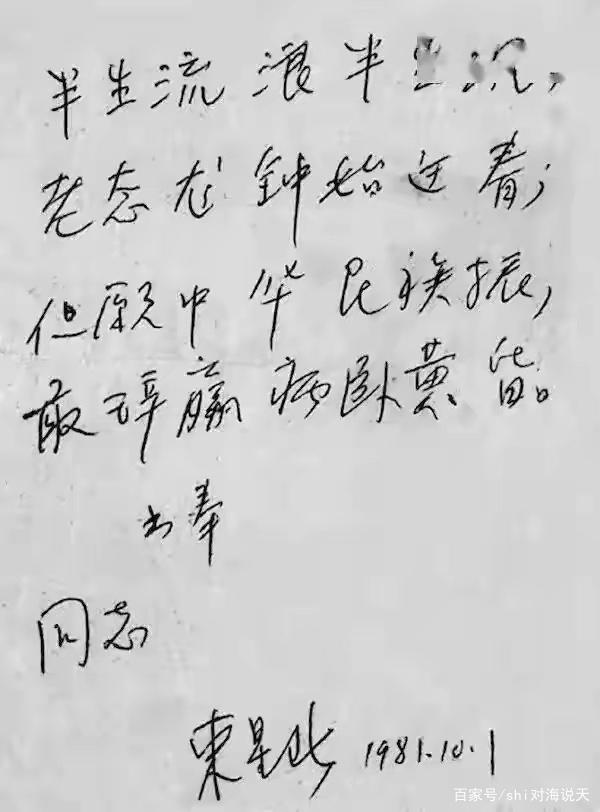 半生流浪半生沉,
老态龙钟始迎春;
但愿中华民族振,
敢辞羸病卧黄昏。
书奉
同志
束星北 1981.10.1
百家号/shi对海说天